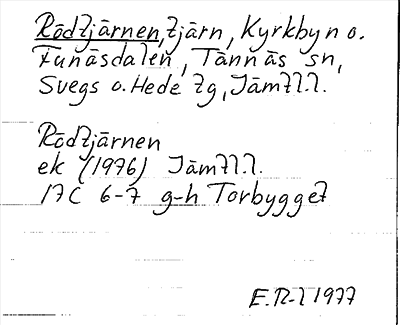 Rödtjärnen, tjärn, Kyrkbyn o.
Funäsdalen, Tännäs sn,
Svegs o. Hede tg, Jämtl.l.
Rödtjärnen
ek (1976) Jämtl.l.
17C 6-7 g-h Torbygget
E.R-l 1977